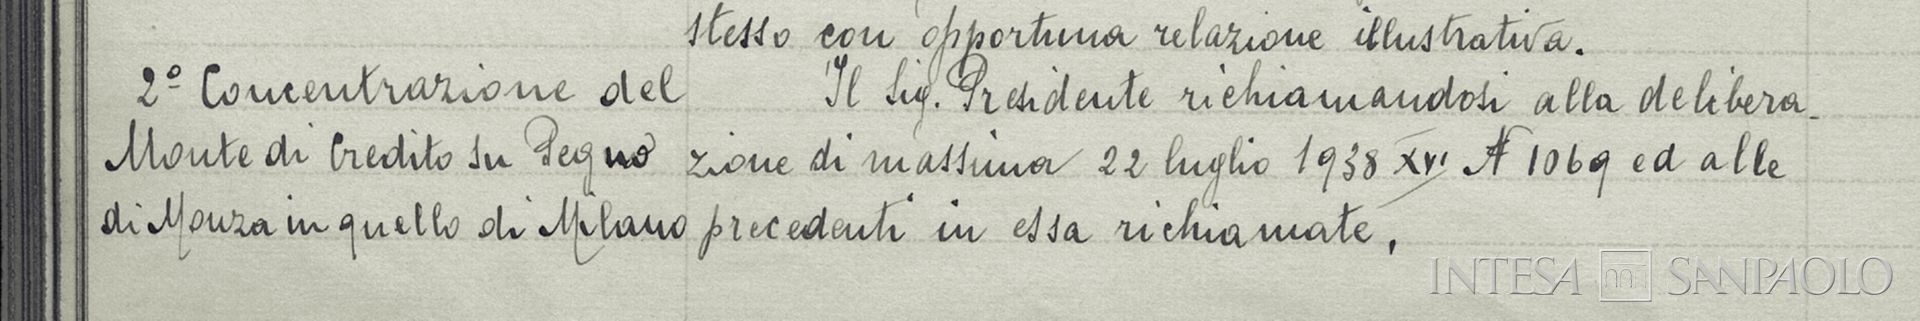 stesso con opportuna relazione illustrativa.
2º Concentrazione del
Monte di Credito su Pegno
di Monza in quello di Milano
Il Sig. Presidente richiamandosi alla delibera-
zione di massima 22 luglio 1938 XVI Nº 1069 ed alle
precedenti in essa richiamate,
INTESA SANPAOLO